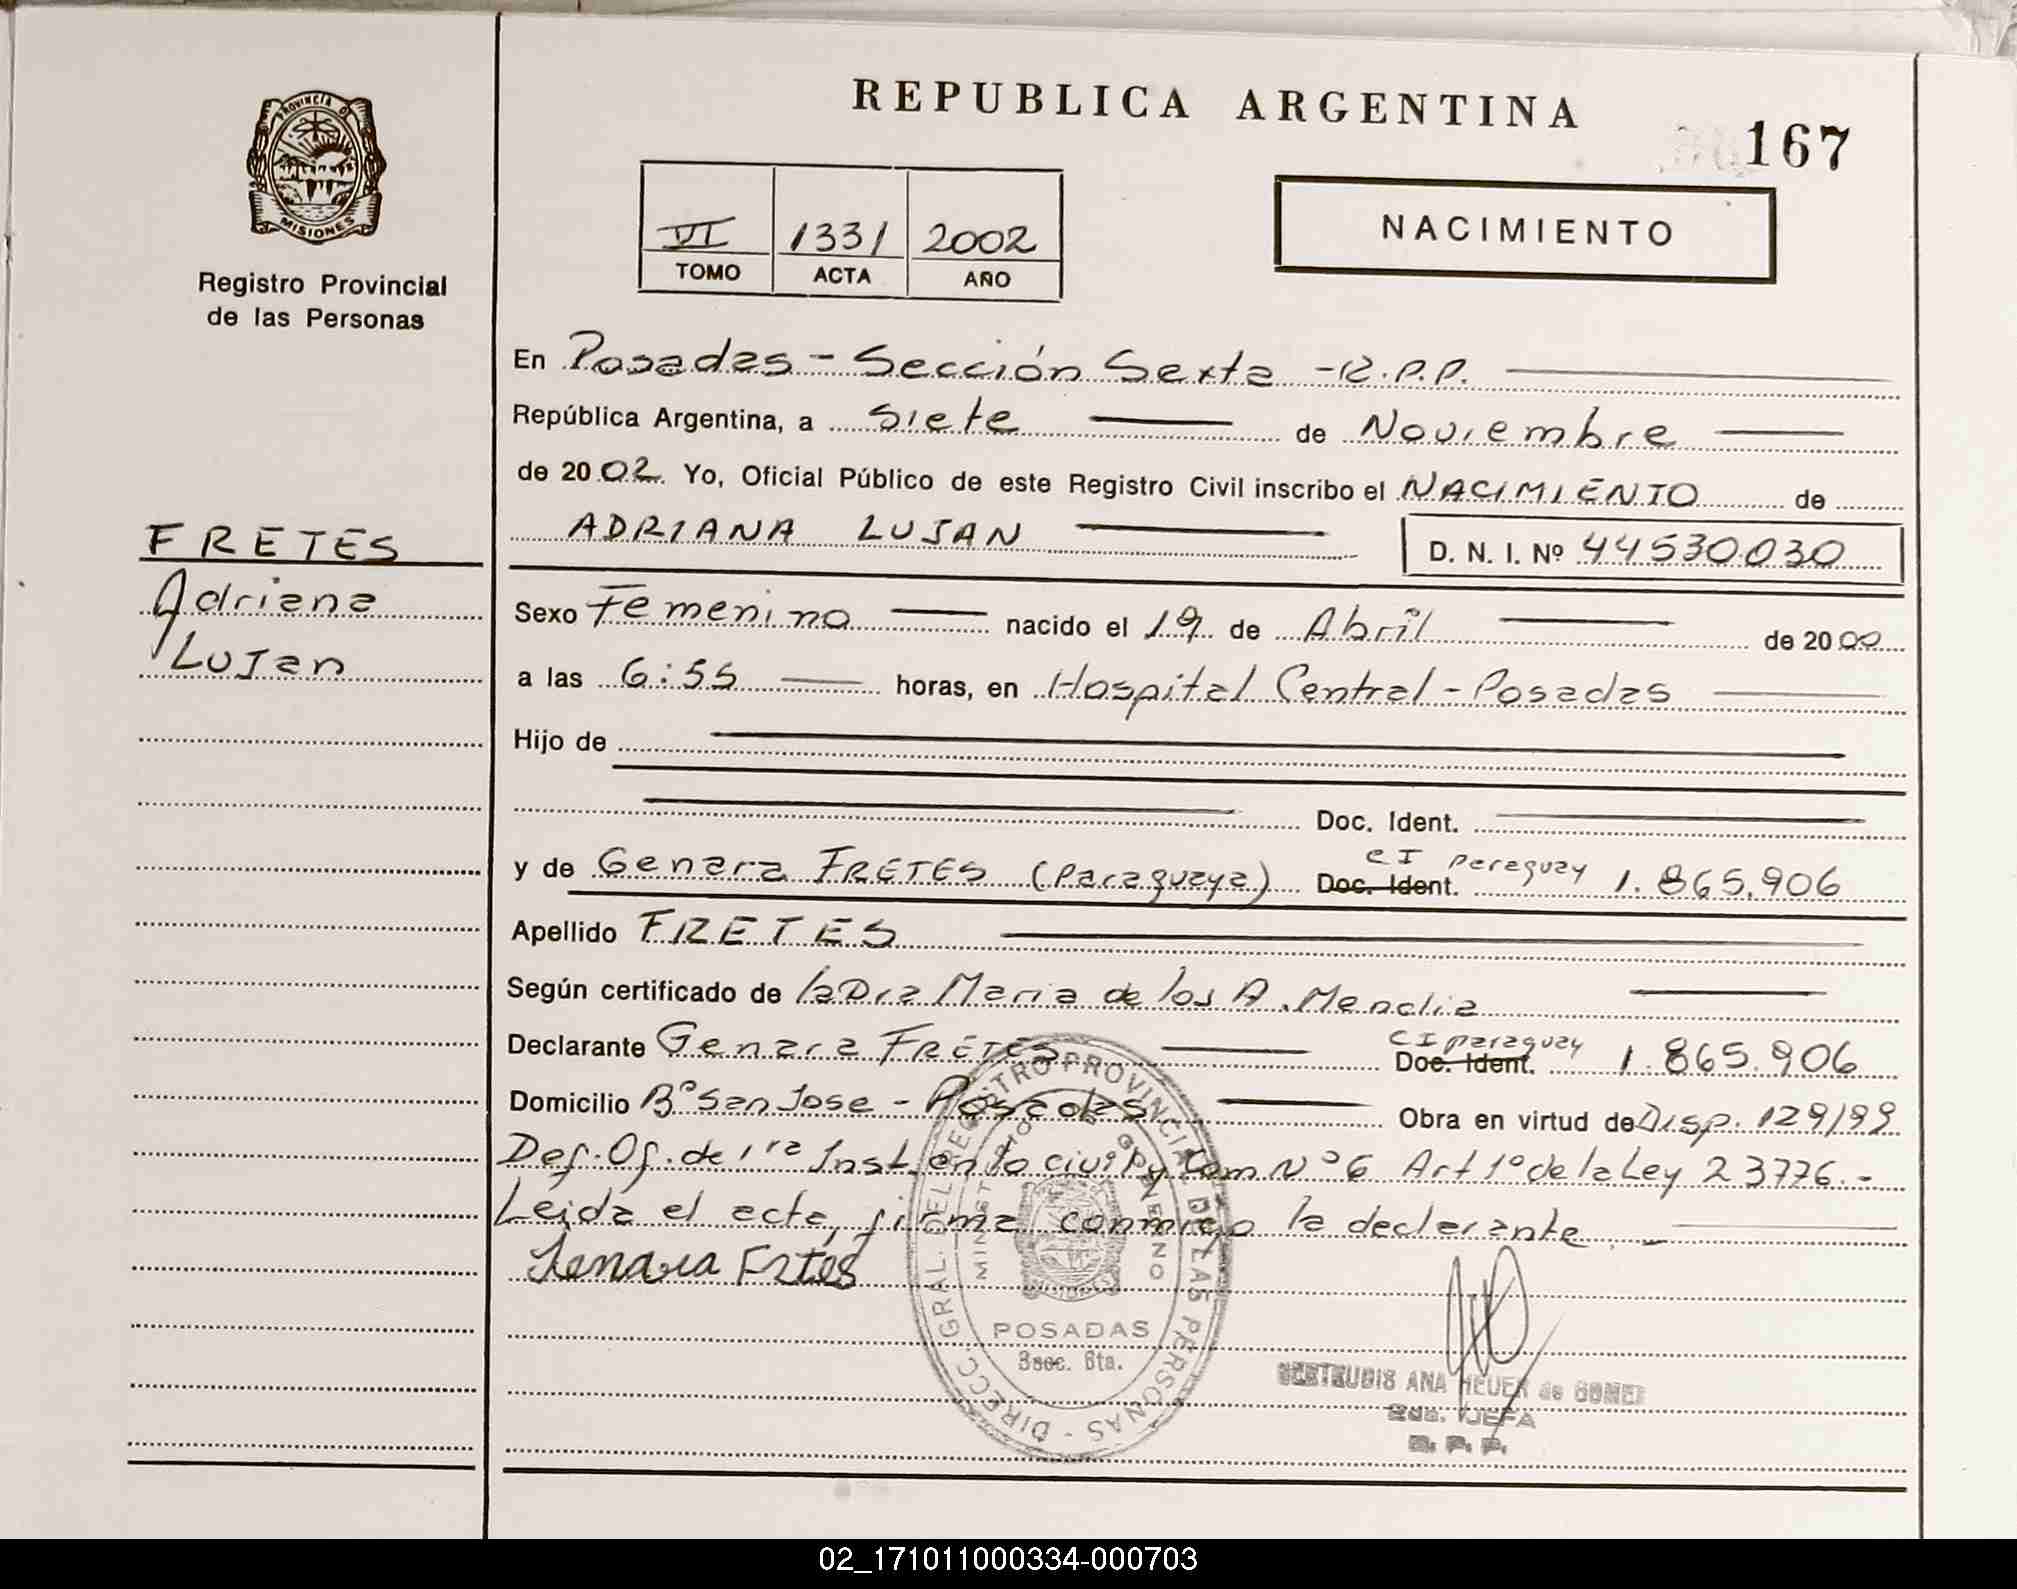 REPUBLICA ARGENTINA
167
PROVINCIA D
MISIONES
Registro Provincial
de las Personas
VI 1331 2002
TOMO ACTA AÑO
NACIMIENTO
En Posadas - Sección Sexta - R.P.P.
República Argentina, a Siete de Noviembre
de 2002. Yo, Oficial Público de este Registro Civil inscribo el NACIMIENTO de
ADRIANA LUJAN D. N. I. Nº 44530.030
FRETES
Adriana
Lujan
Sexo Femenino nacido el 19 de Abril de 2000
a las 6:55 horas, en Hospital Central - Posadas
Hijo de
Doc. Ident.
y de Genara FRETES (Paraguaya) Doc. Ident. CI Paraguay 1.865.906
Apellido FRETES
Según certificado de la Dra Maria de los A.
Declarante Genara FRETES Doc. Ident. CI paraguay 1.865.906
Domicilio Bº San Jose - Posadas Obra en virtud de Disp. 129/99
Def. Of. de 1ra Inst. en lo civil y Com Nº 6 Art 1º de la Ley 23776.-
Leida el acta, firma conmigo la declarante.-
Genara Frtes
DIRECC. GRAL. DEL REGISTRO PROVINCIAL DE LAS PERSONAS
MINISTERIO DE GOBIERNO
POSADAS
Secc. 6ta.
GERTRUDIS ANA HEUER de GOMEZ
2da. JEFA
R. P. P.
02_171011000334-000703